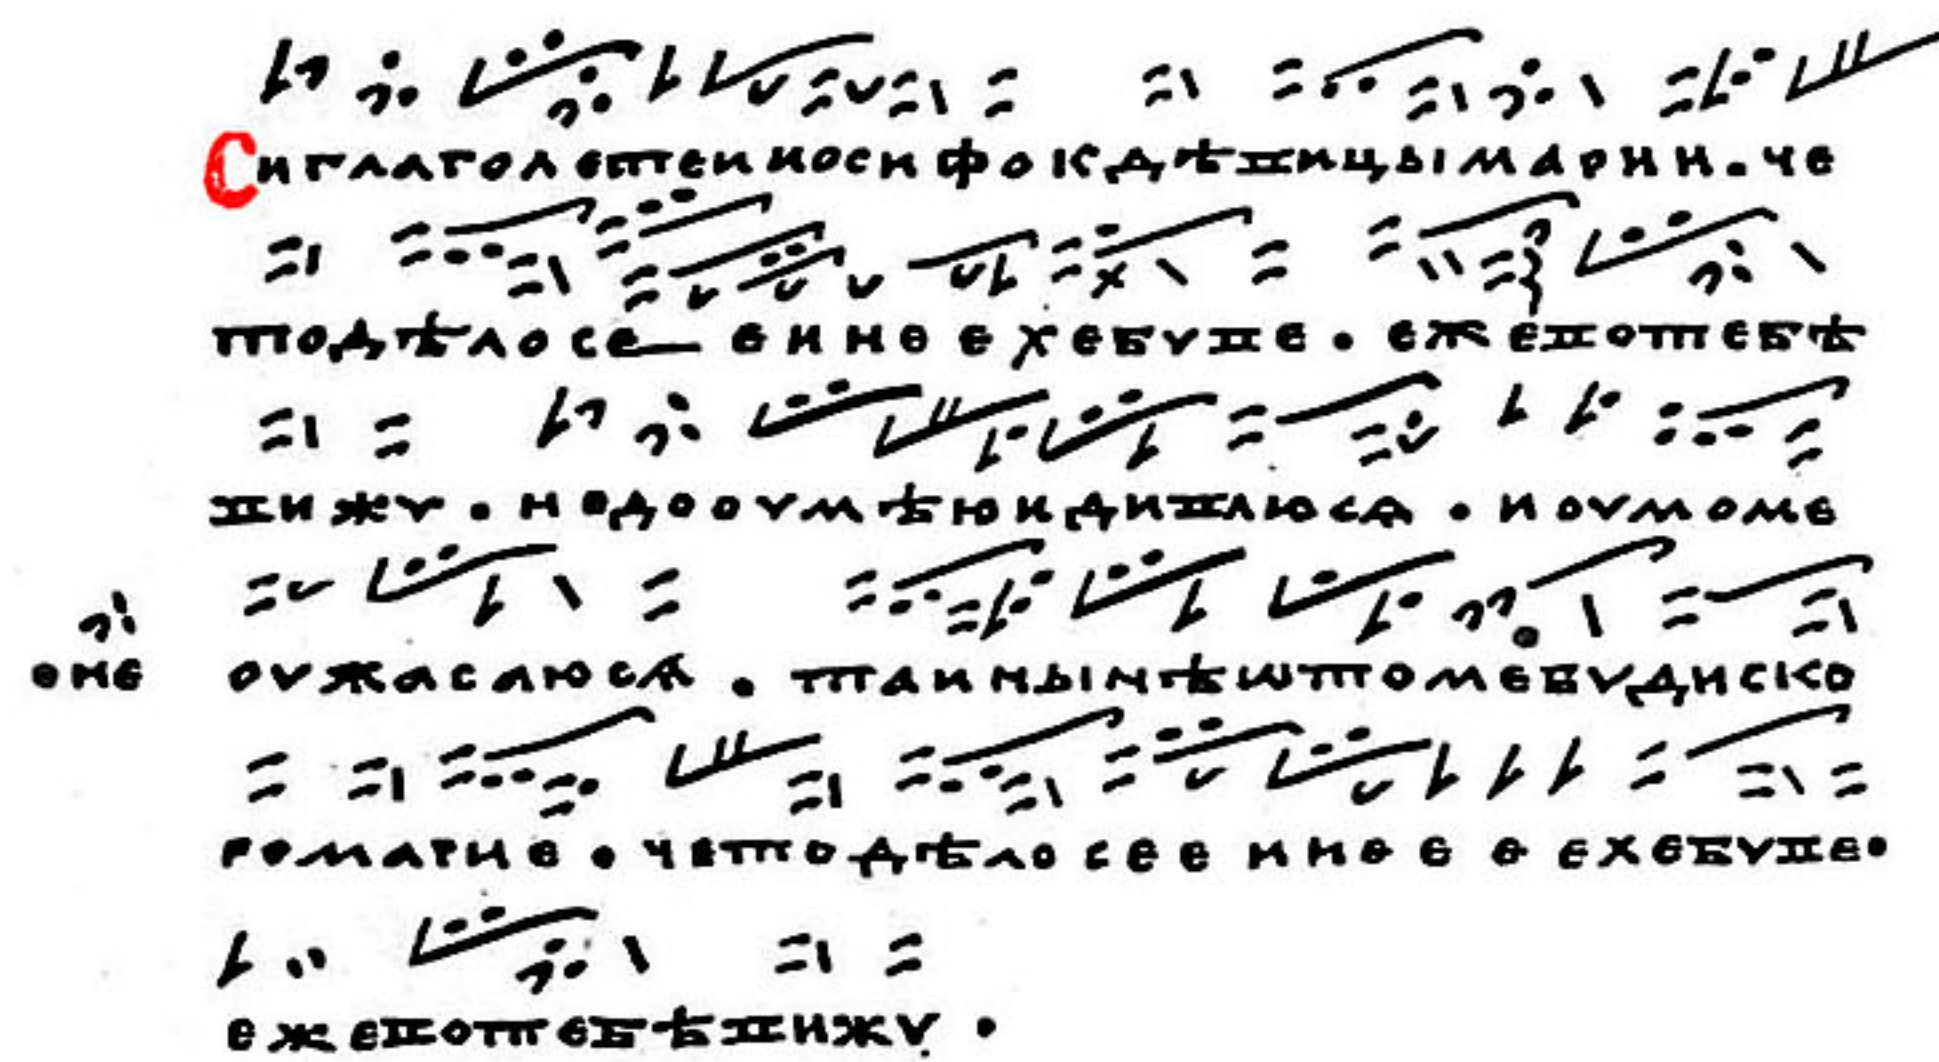 Сиглаголетеи иосифокдѣвицымарии. че
тодѣлосе—еинеехебуве. ежевотебѣ
вижу. недооумѣюидивлюся. иоумоме
оне оужасаюся. таинынѣштомебудиско
ромарие. четодѣлосееинеееехебуве.
ежевотебѣвижу.